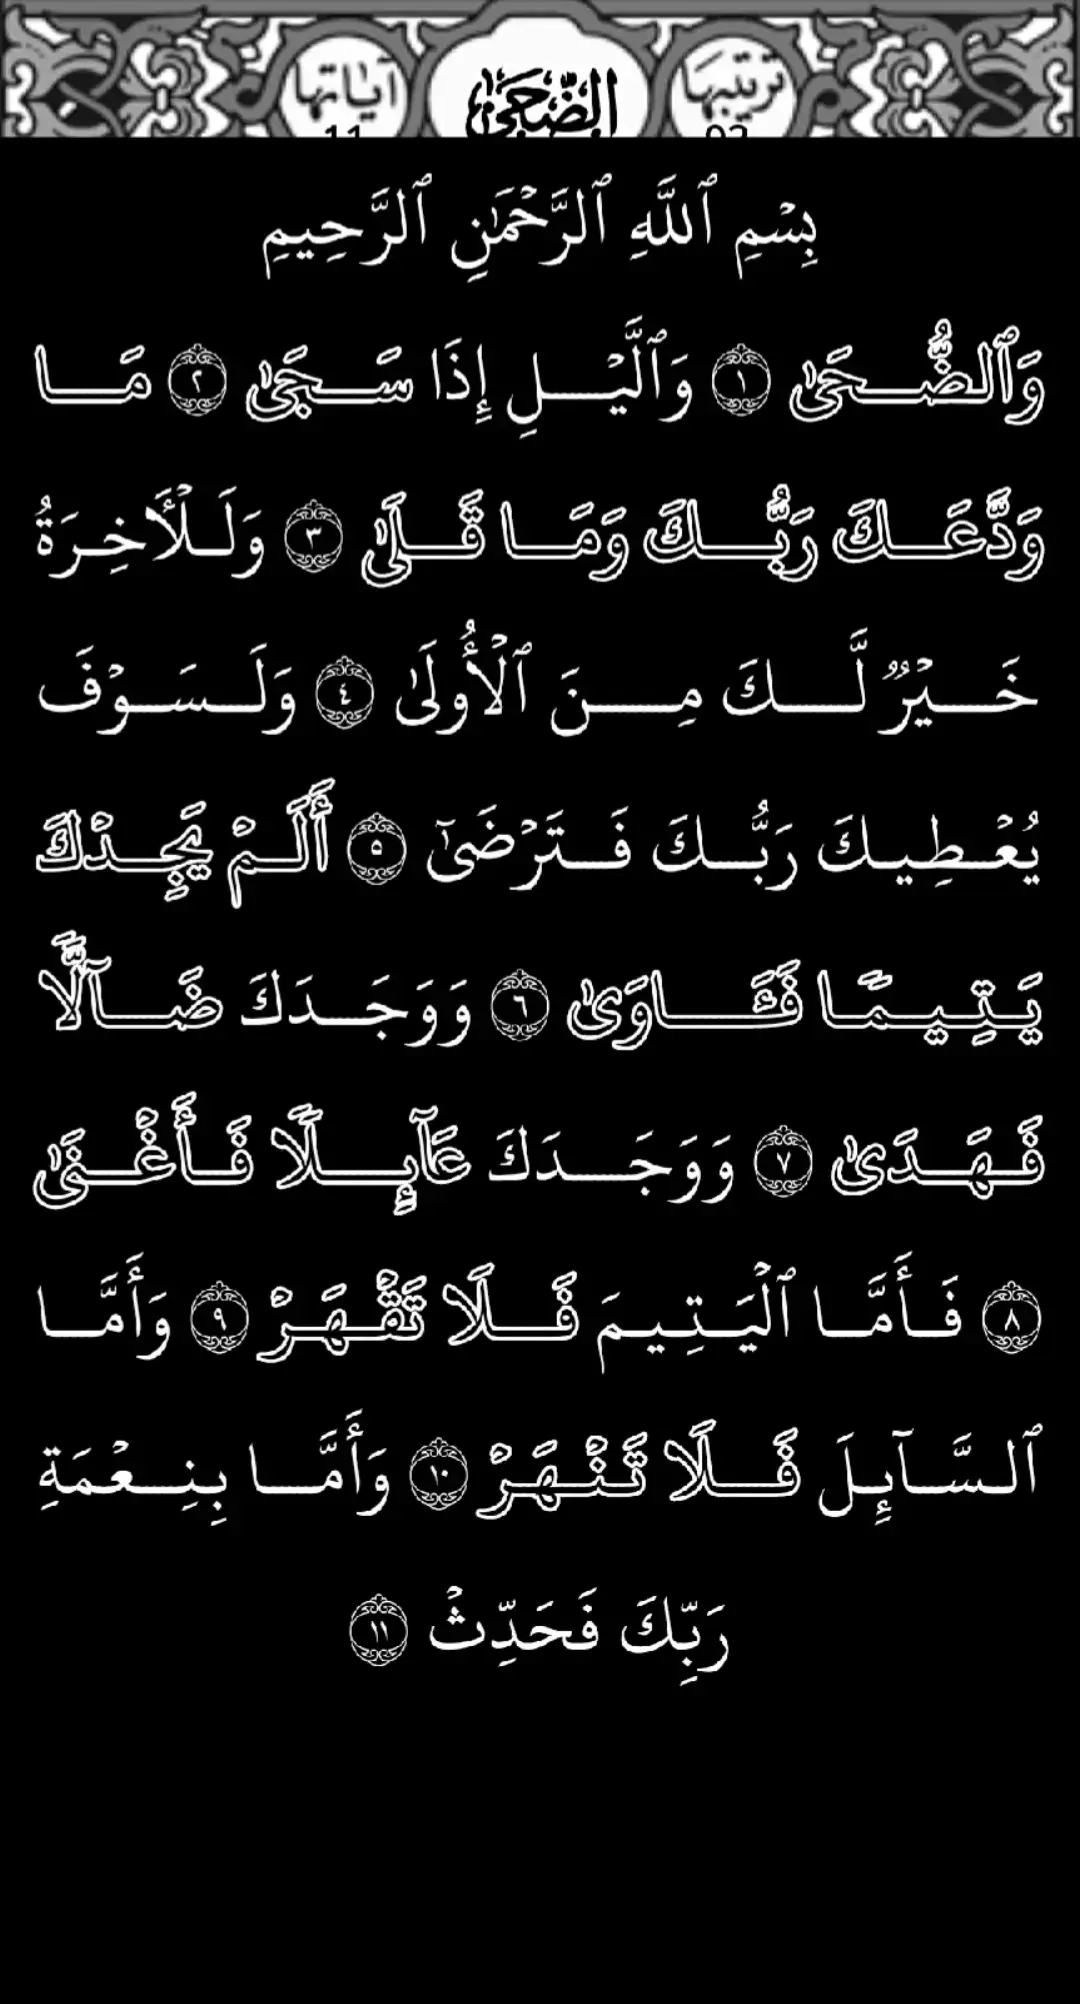 ترتيبها الضحى آياتها
بِسۡمِ ٱللَّهِ ٱلرَّحۡمَٰنِ ٱلرَّحِيمِ
وَٱلضُّحَىٰ ١ وَٱلَّيۡلِ إِذَا سَجَىٰ ٢ مَا
وَدَّعَكَ رَبُّكَ وَمَا قَلَىٰ ٣ وَلَلۡأٓخِرَةُ
خَيۡرٞ لَّكَ مِنَ ٱلۡأُولَىٰ ٤ وَلَسَوۡفَ
يُعۡطِيكَ رَبُّكَ فَتَرۡضَىٰٓ ٥ أَلَمۡ يَجِدۡكَ
يَتِيمٗا فَـَٔاوَىٰ ٦ وَوَجَدَكَ ضَآلّٗا
فَهَدَىٰ ٧ وَوَجَدَكَ عَآئِلٗا فَأَغۡنَىٰ
٨ فَأَمَّا ٱلۡيَتِيمَ فَلَا تَقۡهَرۡ ٩ وَأَمَّا
ٱلسَّآئِلَ فَلَا تَنۡهَرۡ ١٠ وَأَمَّا بِنِعۡمَةِ
رَبِّكَ فَحَدِّثۡ ١١